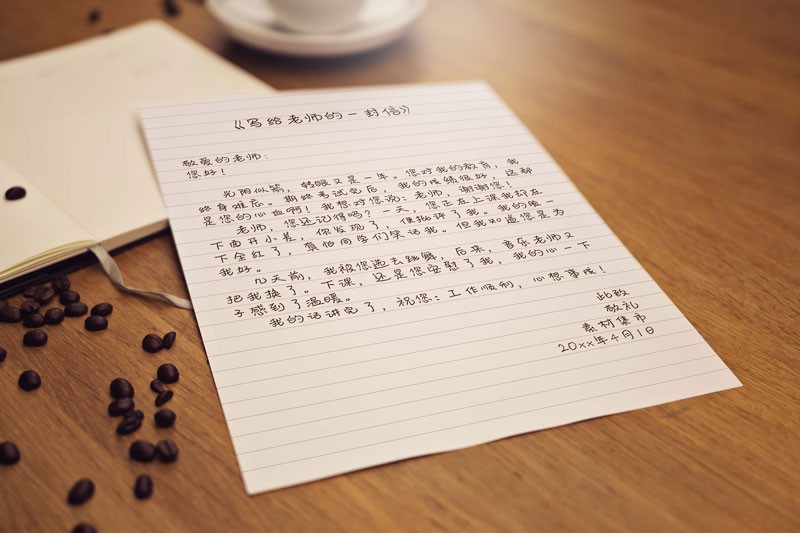 《写给老师的一封信》
敬爱的老师：
您好！
光阴似箭，转眼又是一年。您对我的教育，我
终身难忘。期终考试完后，我的成绩很好，这都
是您的心血啊！我想对您说：老师，谢谢您！
老师，您还记得吗？一天，您正在上课我却在
下面开小差，你发现了，便批评了我。我的脸一
下全红了，真怕同学们笑话我。但我知道您是为
我好。
几天前，我被您选去跳舞，后来，音乐老师又
把我换了。下课，还是您安慰了我，我的心一下
子感到了温暖。
我的话讲完了，祝您：工作顺利，心想事成！
此致
敬礼
素材集市
20xx年4月1日